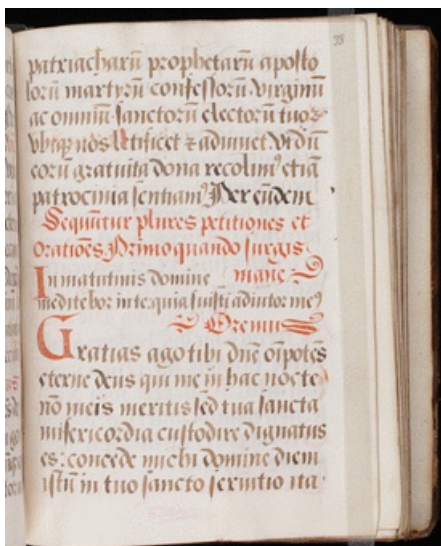 33
patriacharū prophetarū aposto
lorū martyrū confessorū virginū
ac omniū sanctorū electorū tuoꝝ
vbiqꝫ nos letificet ⁊ adiuuet vt dū
eorū gratuita dona recolimꝰ etiā
patrocinia sentiamꝰ Per eūdem
Sequūtur plures petitiones et
oratiōes Primo quando surgis
In matutinis domine mane
meditebor in te: quia fuisti adiutor meꝰ
Oremus
Gratias ago tibi dn̄e oīpotēs
eterne deus qui me in hac nocte
nō meis meritis sed tua sancta
misericordia custodire dignatus
es: concede michi domine diem
istū in tuo sancto seruitio ita